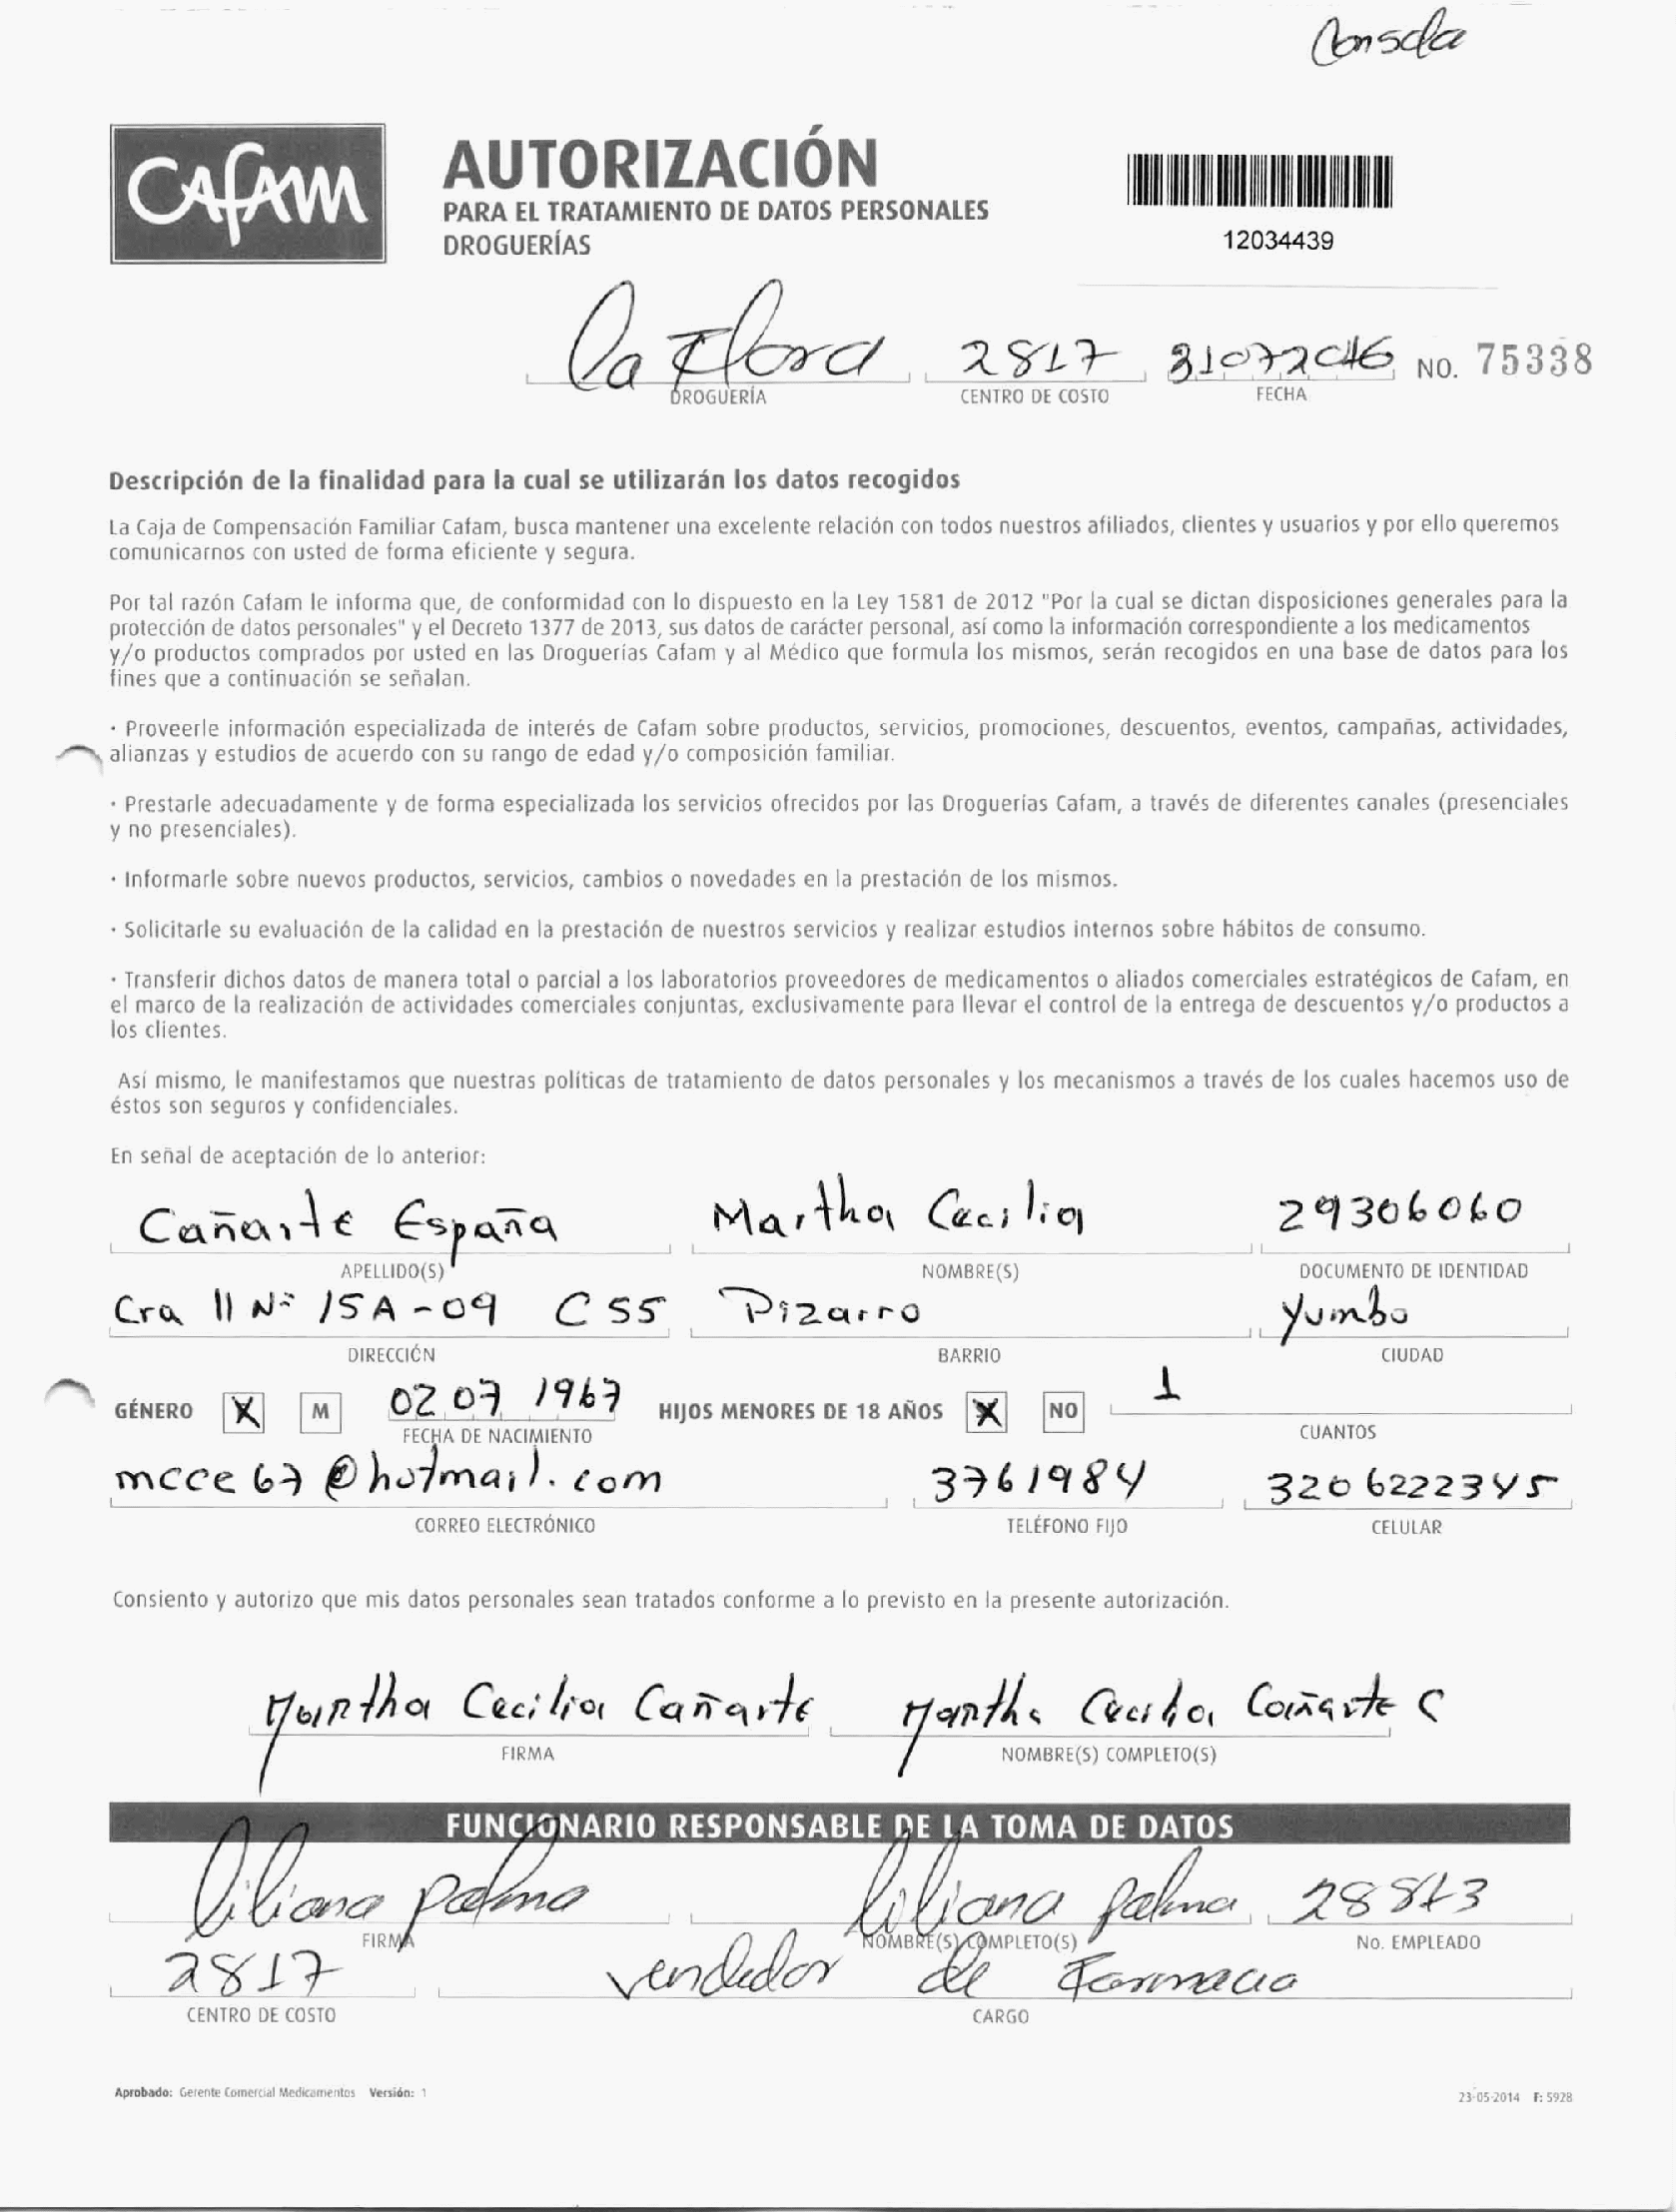 Consda
CAfAM
AUTORIZACIÓN
PARA EL TRATAMIENTO DE DATOS PERSONALES
DROGUERÍAS
12034439
La Flora 2817 31072016 NO. 75338
DROGUERÍA CENTRO DE COSTO FECHA
Descripción de la finalidad para la cual se utilizarán los datos recogidos
La Caja de Compensación Familiar Cafam, busca mantener una excelente relación con todos nuestros afiliados, clientes y usuarios y por ello queremos
comunicarnos con usted de forma eficiente y segura.
Por tal razón Cafam le informa que, de conformidad con lo dispuesto en la Ley 1581 de 2012 "Por la cual se dictan disposiciones generales para la
protección de datos personales" y el Decreto 1377 de 2013, sus datos de carácter personal, así como la información correspondiente a los medicamentos
y/o productos comprados por usted en las Droguerías Cafam y al Médico que formula los mismos, serán recogidos en una base de datos para los
fines que a continuación se señalan.
· Proveerle información especializada de interés de Cafam sobre productos, servicios, promociones, descuentos, eventos, campañas, actividades,
alianzas y estudios de acuerdo con su rango de edad y/o composición familiar.
· Prestarle adecuadamente y de forma especializada los servicios ofrecidos por las Droguerías Cafam, a través de diferentes canales (presenciales
y no presenciales).
· Informarle sobre nuevos productos, servicios, cambios o novedades en la prestación de los mismos.
· Solicitarle su evaluación de la calidad en la prestación de nuestros servicios y realizar estudios internos sobre hábitos de consumo.
· Transferir dichos datos de manera total o parcial a los laboratorios proveedores de medicamentos o aliados comerciales estratégicos de Cafam, en
el marco de la realización de actividades comerciales conjuntas, exclusivamente para llevar el control de la entrega de descuentos y/o productos a
los clientes.
Así mismo, le manifestamos que nuestras políticas de tratamiento de datos personales y los mecanismos a través de los cuales hacemos uso de
éstos son seguros y confidenciales.
En señal de aceptación de lo anterior:
Cañarte España Martha Cecilia 29306060
APELLIDO(S) NOMBRE(S) DOCUMENTO DE IDENTIDAD
Cra 11 Nº 15A-09 C 55 Pizarro Yumbo
DIRECCIÓN BARRIO CIUDAD
GÉNERO X M 02 07 1967 HIJOS MENORES DE 18 AÑOS X NO 1
FECHA DE NACIMIENTO CUANTOS
mcce67@hotmail.com 3761984 3206222345
CORREO ELECTRÓNICO TELÉFONO FIJO CELULAR
Consiento y autorizo que mis datos personales sean tratados conforme a lo previsto en la presente autorización.
Martha Cecilia Cañarte Martha Cecilia Cañarte C
FIRMA NOMBRE(S) COMPLETO(S)
FUNCIONARIO RESPONSABLE DE LA TOMA DE DATOS
liliana palma liliana palma 28813
FIRMA NOMBRE(S) COMPLETO(S) No. EMPLEADO
2817 vendedor de Farmacia
CENTRO DE COSTO CARGO
Aprobado: Gerente Comercial Medicamentos Versión: 1
23-05-2014 F: 5928